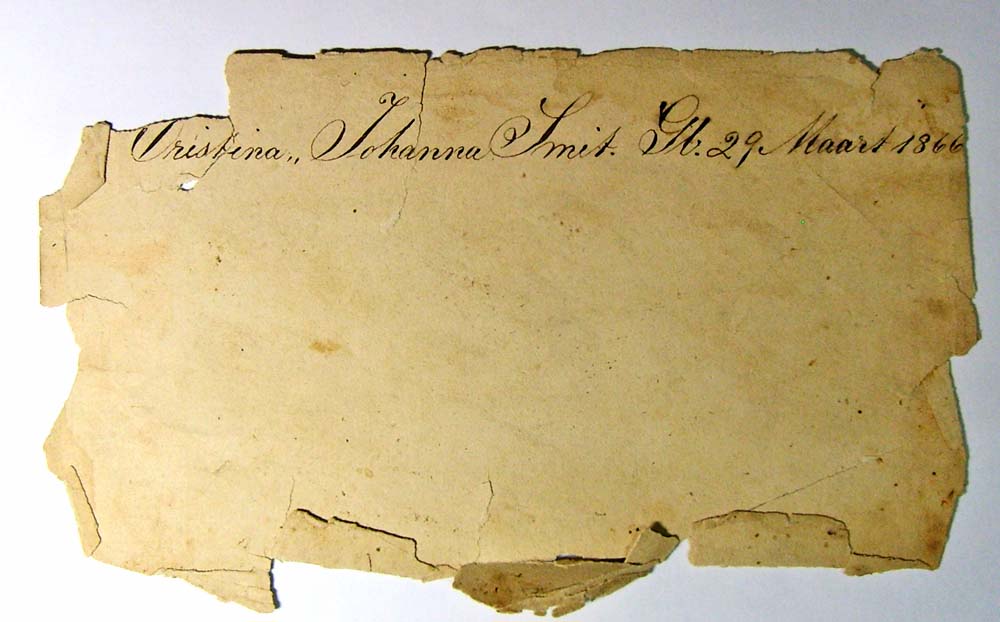 Cristina,, Johanna Smit. Gb. 29 Maart 1866